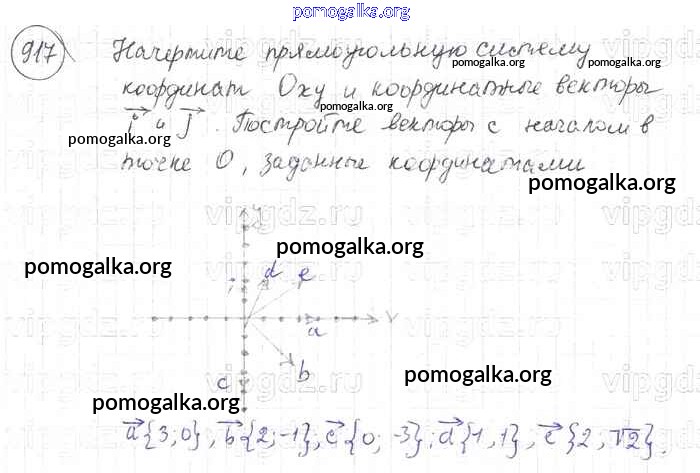 pomogalka.org
917
Начертите прямоугольную систему
pomogalka.org
pomogalka.org
координат Oxy и координатные векторы
i и j. Постройте векторы с началом в
pomogalka.org
pomogalka.org
точке O, заданные координатами
pomogalka.org
vipgdz.ru
vipgdz.ru
vipgdz.ru
y
pomogalka.org
pomogalka.org
d e
i
a x
b
c
pomogalka.org
pomogalka.org
a{3; 0}; b{2; -1}; c{0; -3}; d{1, 1}; e{2; √2}.